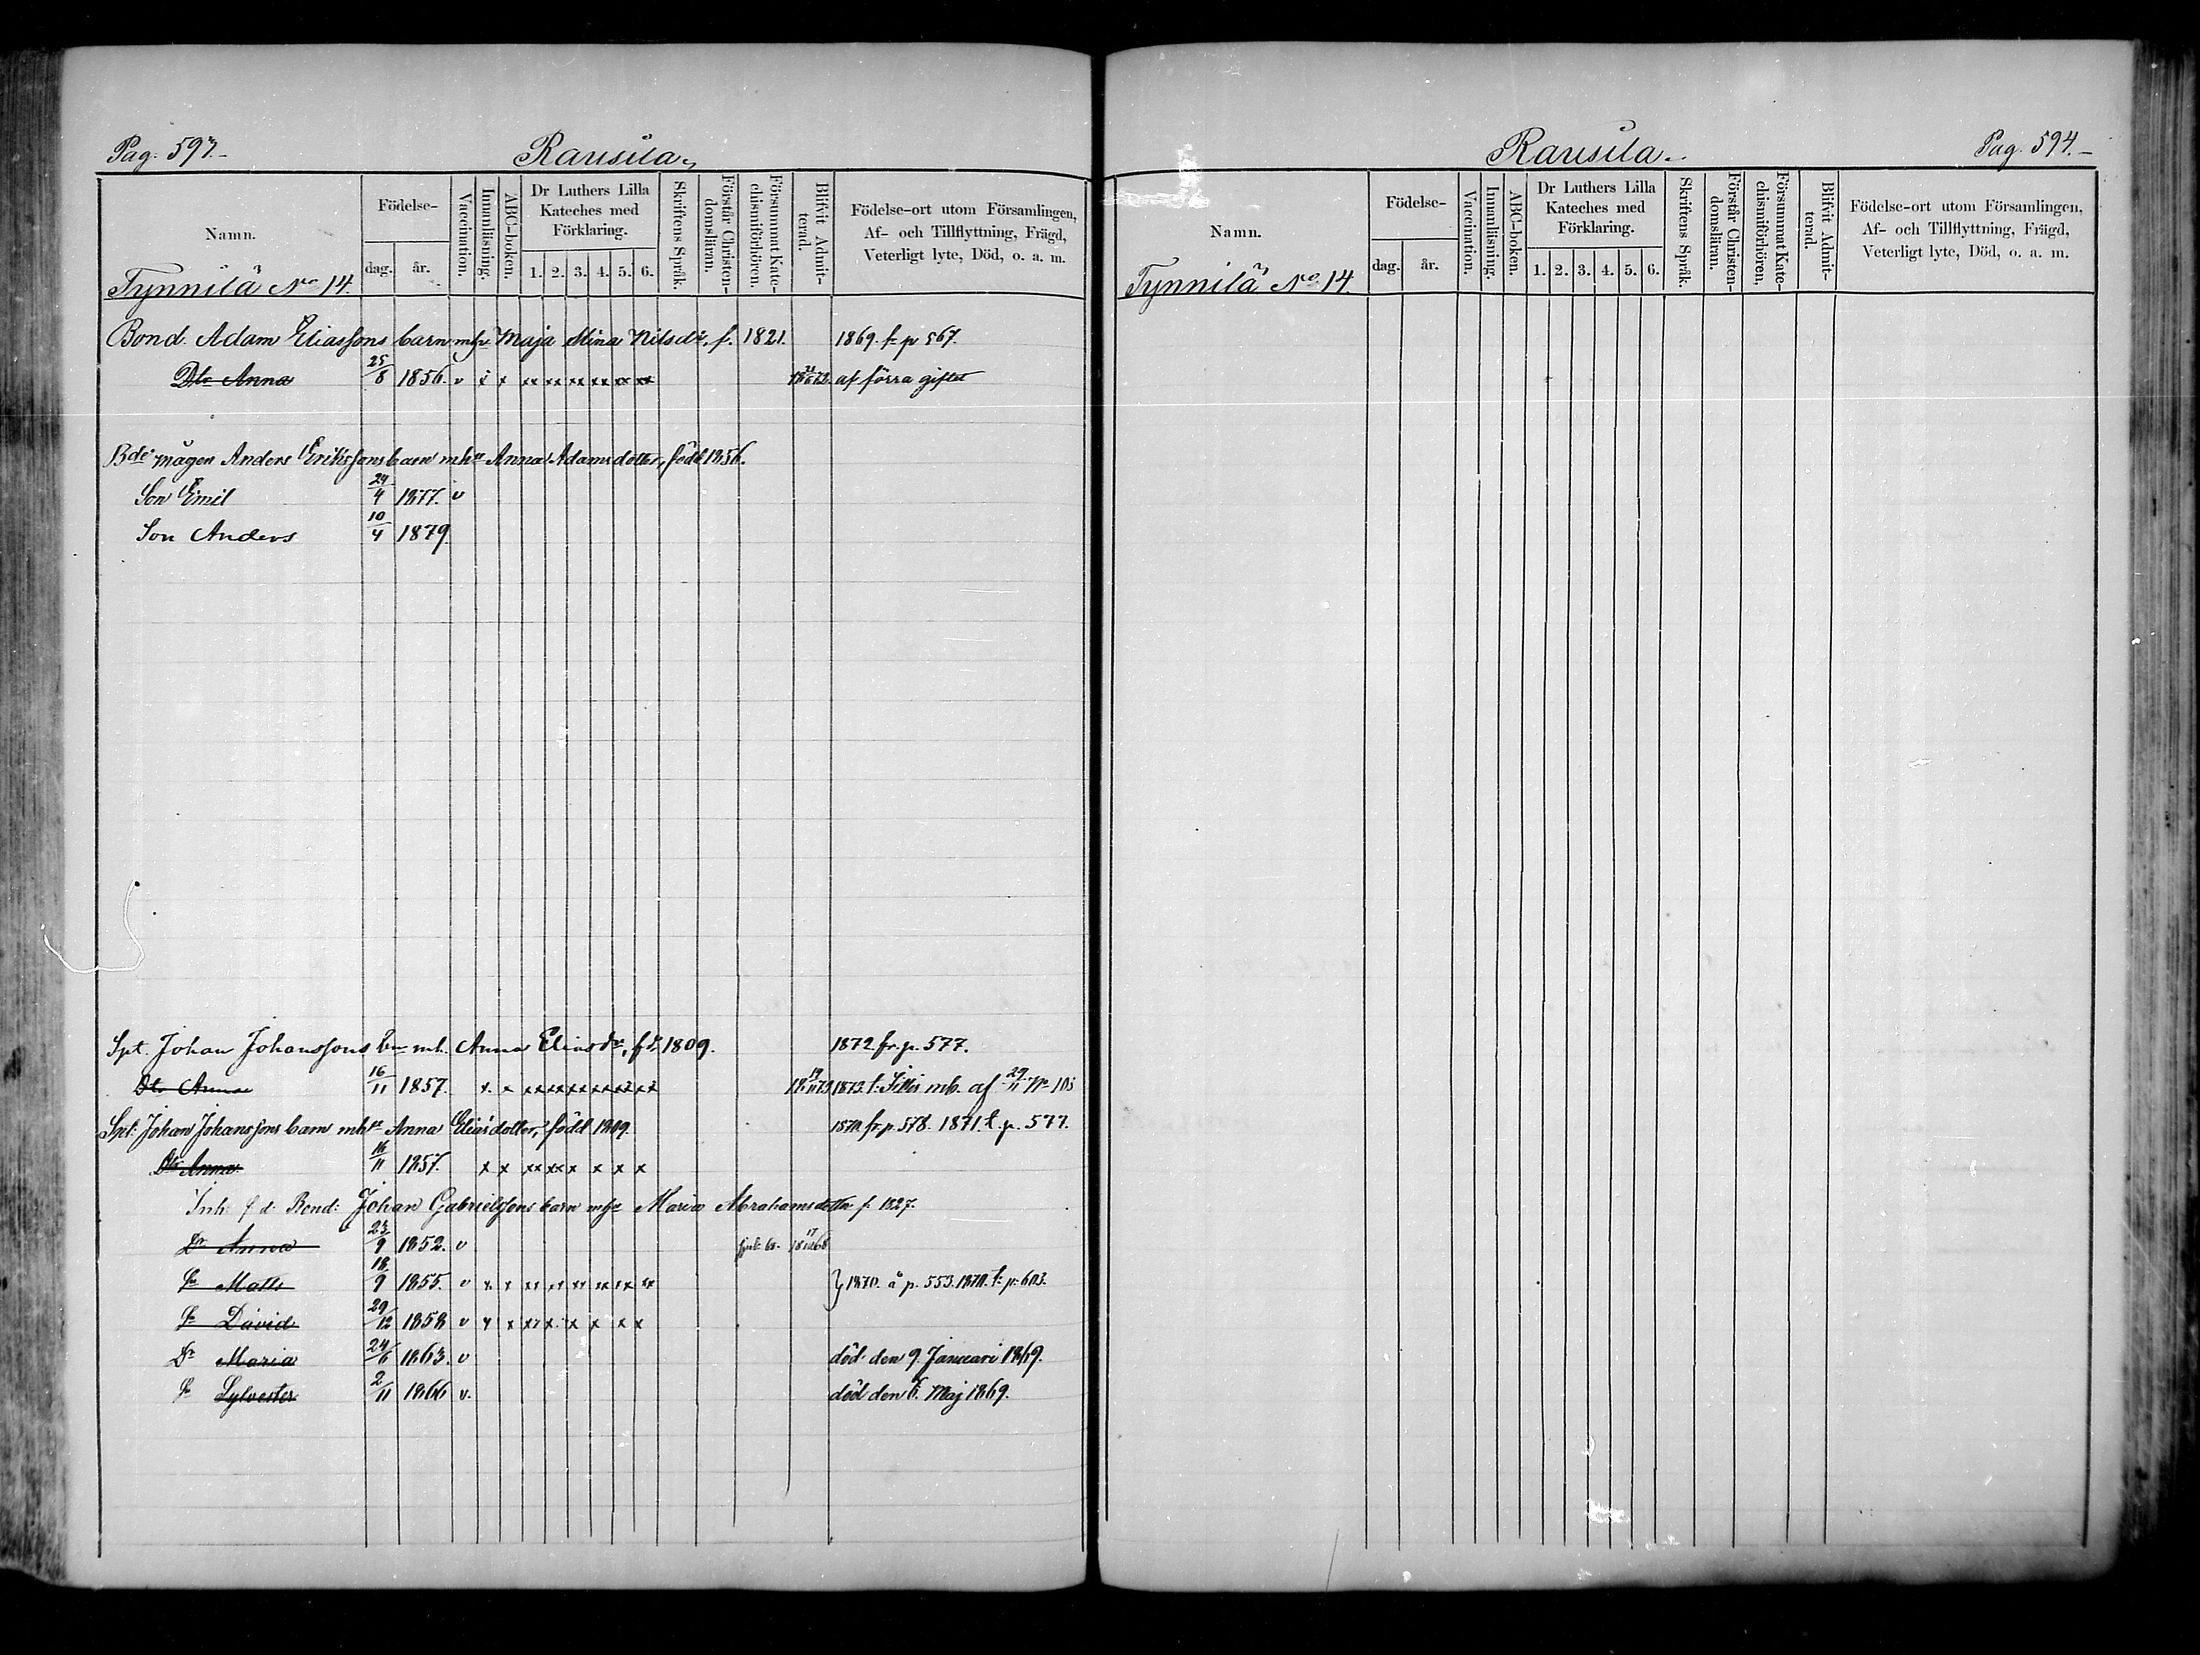 Pag. 593.
Rausila.
Namn.
Födelse-
dag.
år.
Vaccination.
Innanläsning.
ABC-boken.
Dr Luthers Lilla Kateches med Förklaring.
1. 2. 3. 4. 5. 6.
Skriftens Språk.
Förstår Christendomsläran.
Försummat Katechismiförhören.
Blifvit Admitterad.
Födelse-ort utom Församlingen, Af- och Tillflyttning, Frägd, Veterligt lyte, Död, o. a. m.
Tynnilä No 14.
Bond. Adam Eliassons barn mhu Maja Stina Nilsdr, f. 1821. 1869. f. p 567.
Dtr Anna 25/8 1856. v x x xx xx xx xx xx xx af förra giftet
Bde mågen Anders Erikssons barn mhu Anna Adamsdotter, född 1856.
Son Emil 29/4 1877. v
Son Anders 10/4 1879.
Spt. Johan Johanssons bn mh. Anna Eliasdr, fd. 1809. 1872 fr. p. 577.
Dtr Anna 16/11 1857. x x xx xx xx xx xx xx 1873. t. mb. af 29/11 No
Spt: Johan Johanssons barn mhu Anna Eliasdotter, född 1809. 1870. fr. p. 578. 1871. t. p. 577.
Dtr Anna 16/11 1857. x x xx xx x x x x
Inh: f d: Bond: Johan Gabrielssons barn mhu Maria Abrahamsdotter f. 1827.
Dr Anna 23/9 1852. v
Sn Matts 18/9 1855. v x x xx xx xx xx xx xx } 1870. å p. 553. 1870. t: p: 603.
Sn David 29/12 1858 v x x xx x x x x x
Dr Maria 24/6 1863. v död den 9. Januari 1869.
Sn Sylvester 2/11 1866 v. död den 6. Maj 1869.
Rausila.
Pag. 594.
Namn.
Födelse-
dag.
år.
Vaccination.
Innanläsning.
ABC-boken.
Dr Luthers Lilla Kateches med Förklaring.
1. 2. 3. 4. 5. 6.
Skriftens Språk.
Förstår Christendomsläran.
Försummat Katechismiförhören,
Blifvit Admitterad.
Födelse-ort utom Församlingen, Af- och Tillflyttning, Frägd, Veterligt lyte, Död, o. a. m.
Tynnilä No 14.